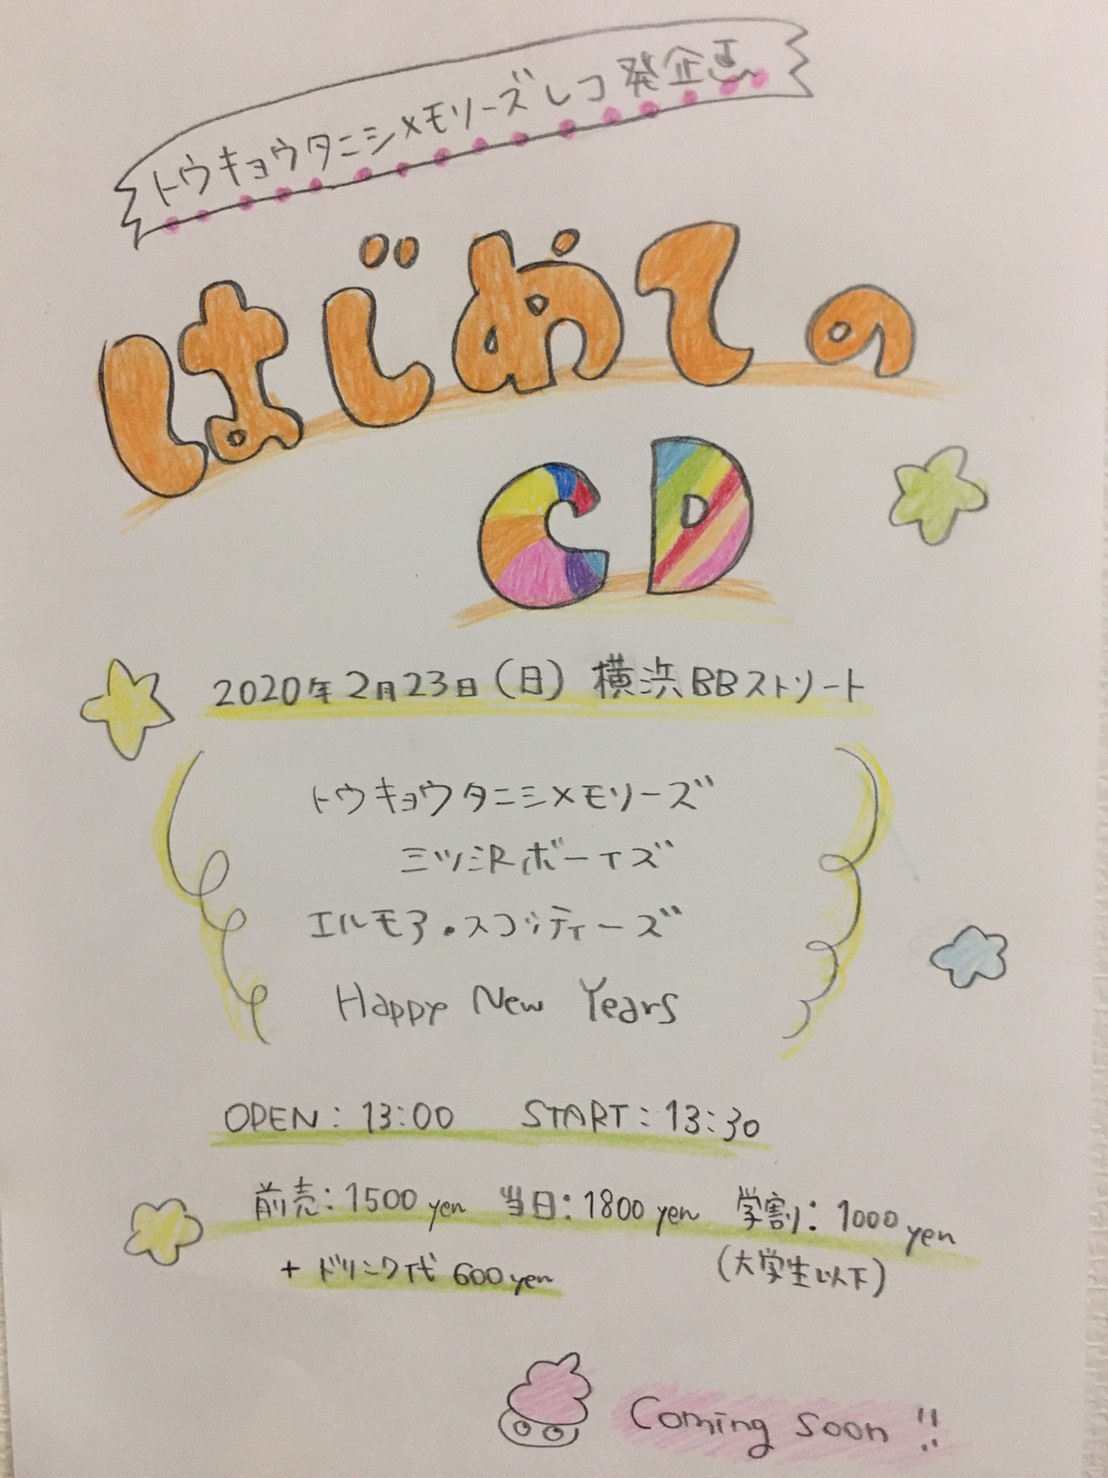 トウキョウタニシメモリーズレコ発企画
はじめての
CD
2020年2月23日(日) 横浜BBストリート
トウキョウタニシメモリーズ
三ツ沢ボーイズ
エルモア・スコッティーズ
Happy New Years
OPEN:13:00 START:13:30
前売:1500yen 当日:1800yen 学割:1000yen
+ドリンク代600yen (大学生以下)
Coming soon!!